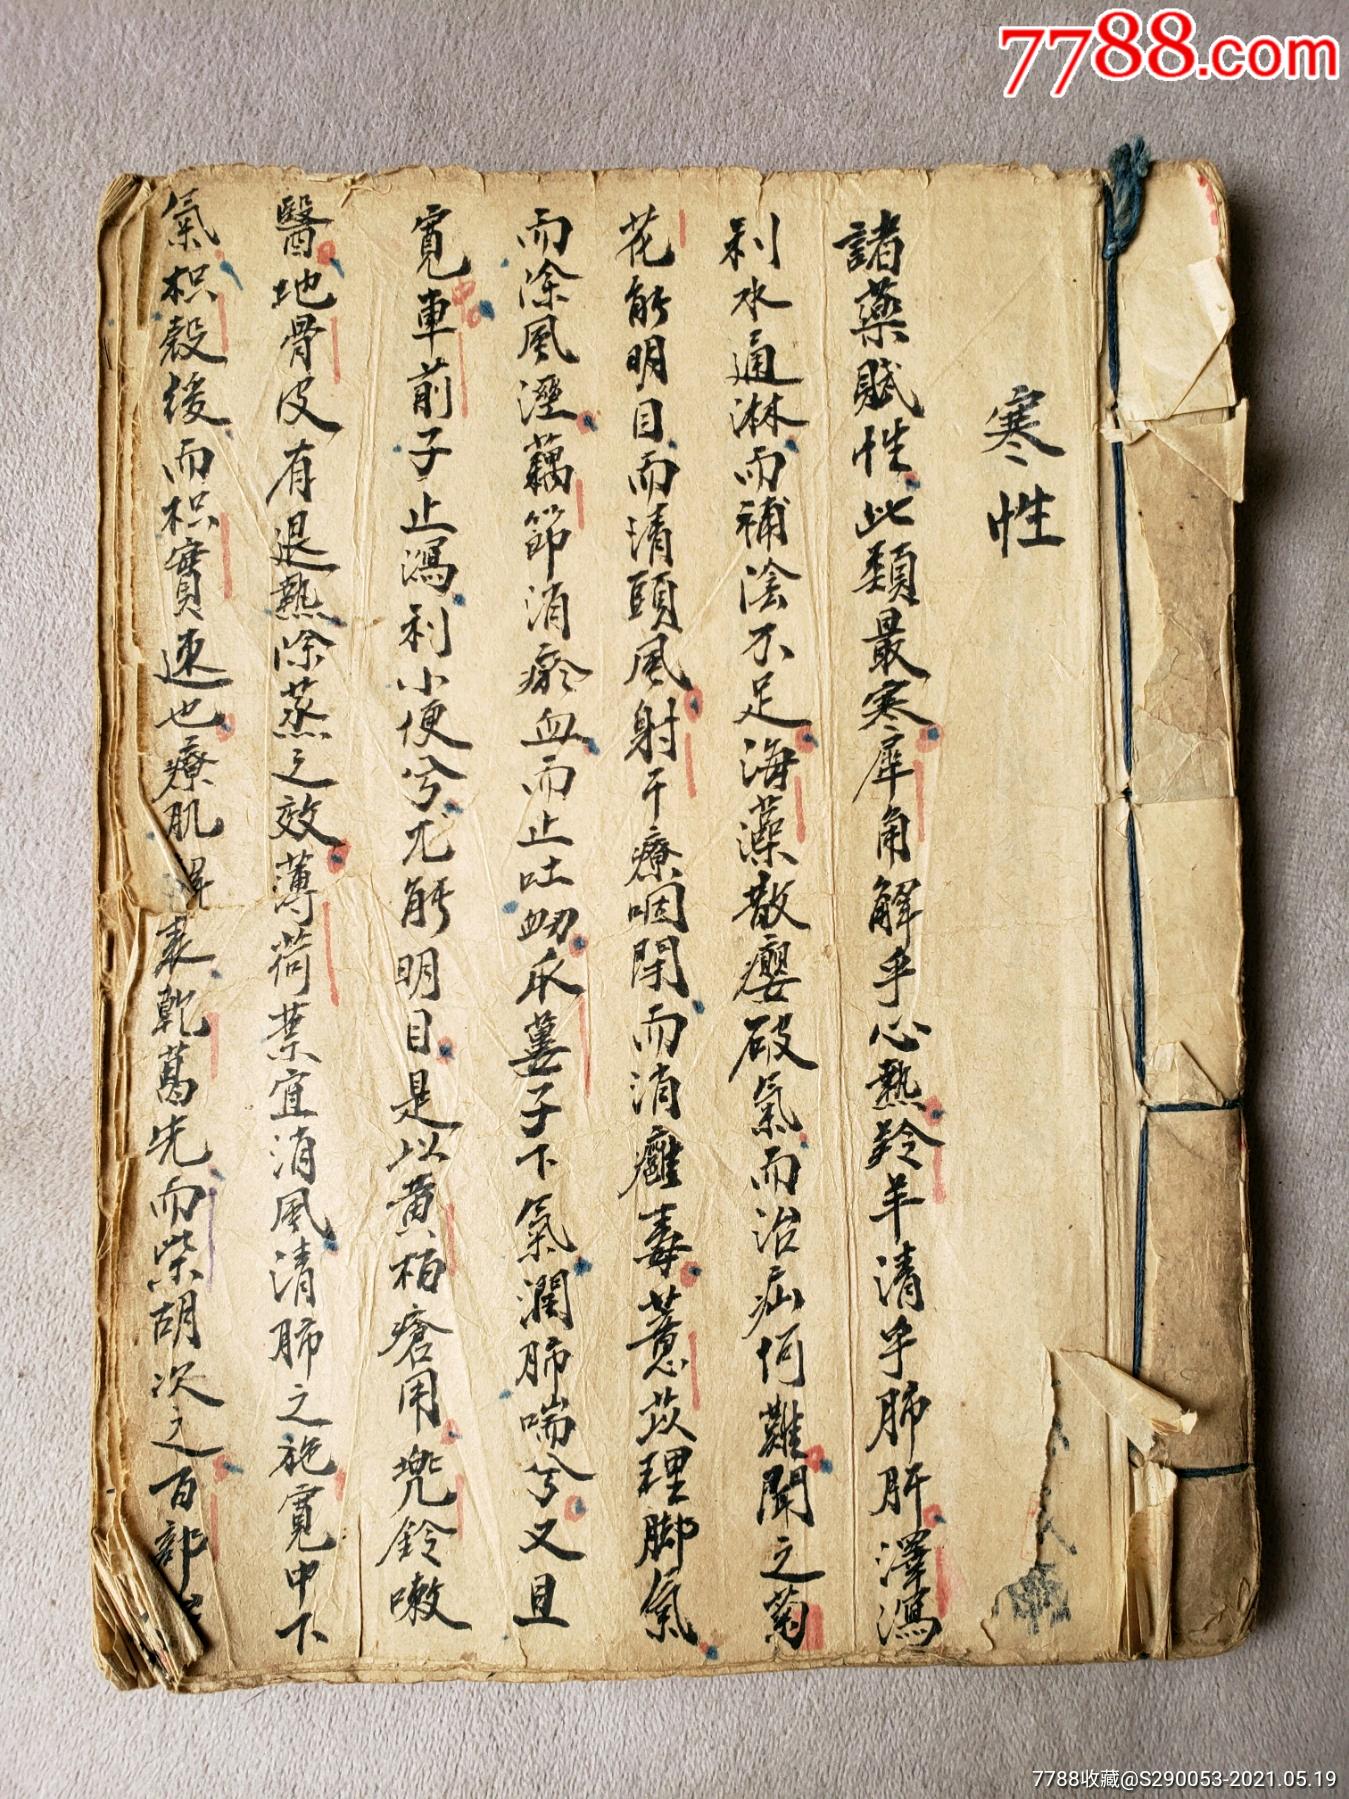 7788.com
寒性
諸藥賦性此類最寒犀角解乎心熱羚羊清乎肺肝澤瀉
利水通淋而補陰不足海藻散癭破氣而治疝何難聞之菊
花能明目而清頭風射干療咽閉而消癰毒薏苡理脚氣
而除風溼藕節消瘀血而止吐衂瓜蔞子下氣潤肺喘兮又且
寬車前子止瀉利小便兮尤能明目是以黃柏瘡用兜鈴嗽
醫地骨皮有退熱除蒸之效薄荷葉宜消風清肺之施寬中下
氣枳殼緩而枳實速也療肌解表乾葛先而柴胡次之百部
7788收藏@S290053-2021.05.19